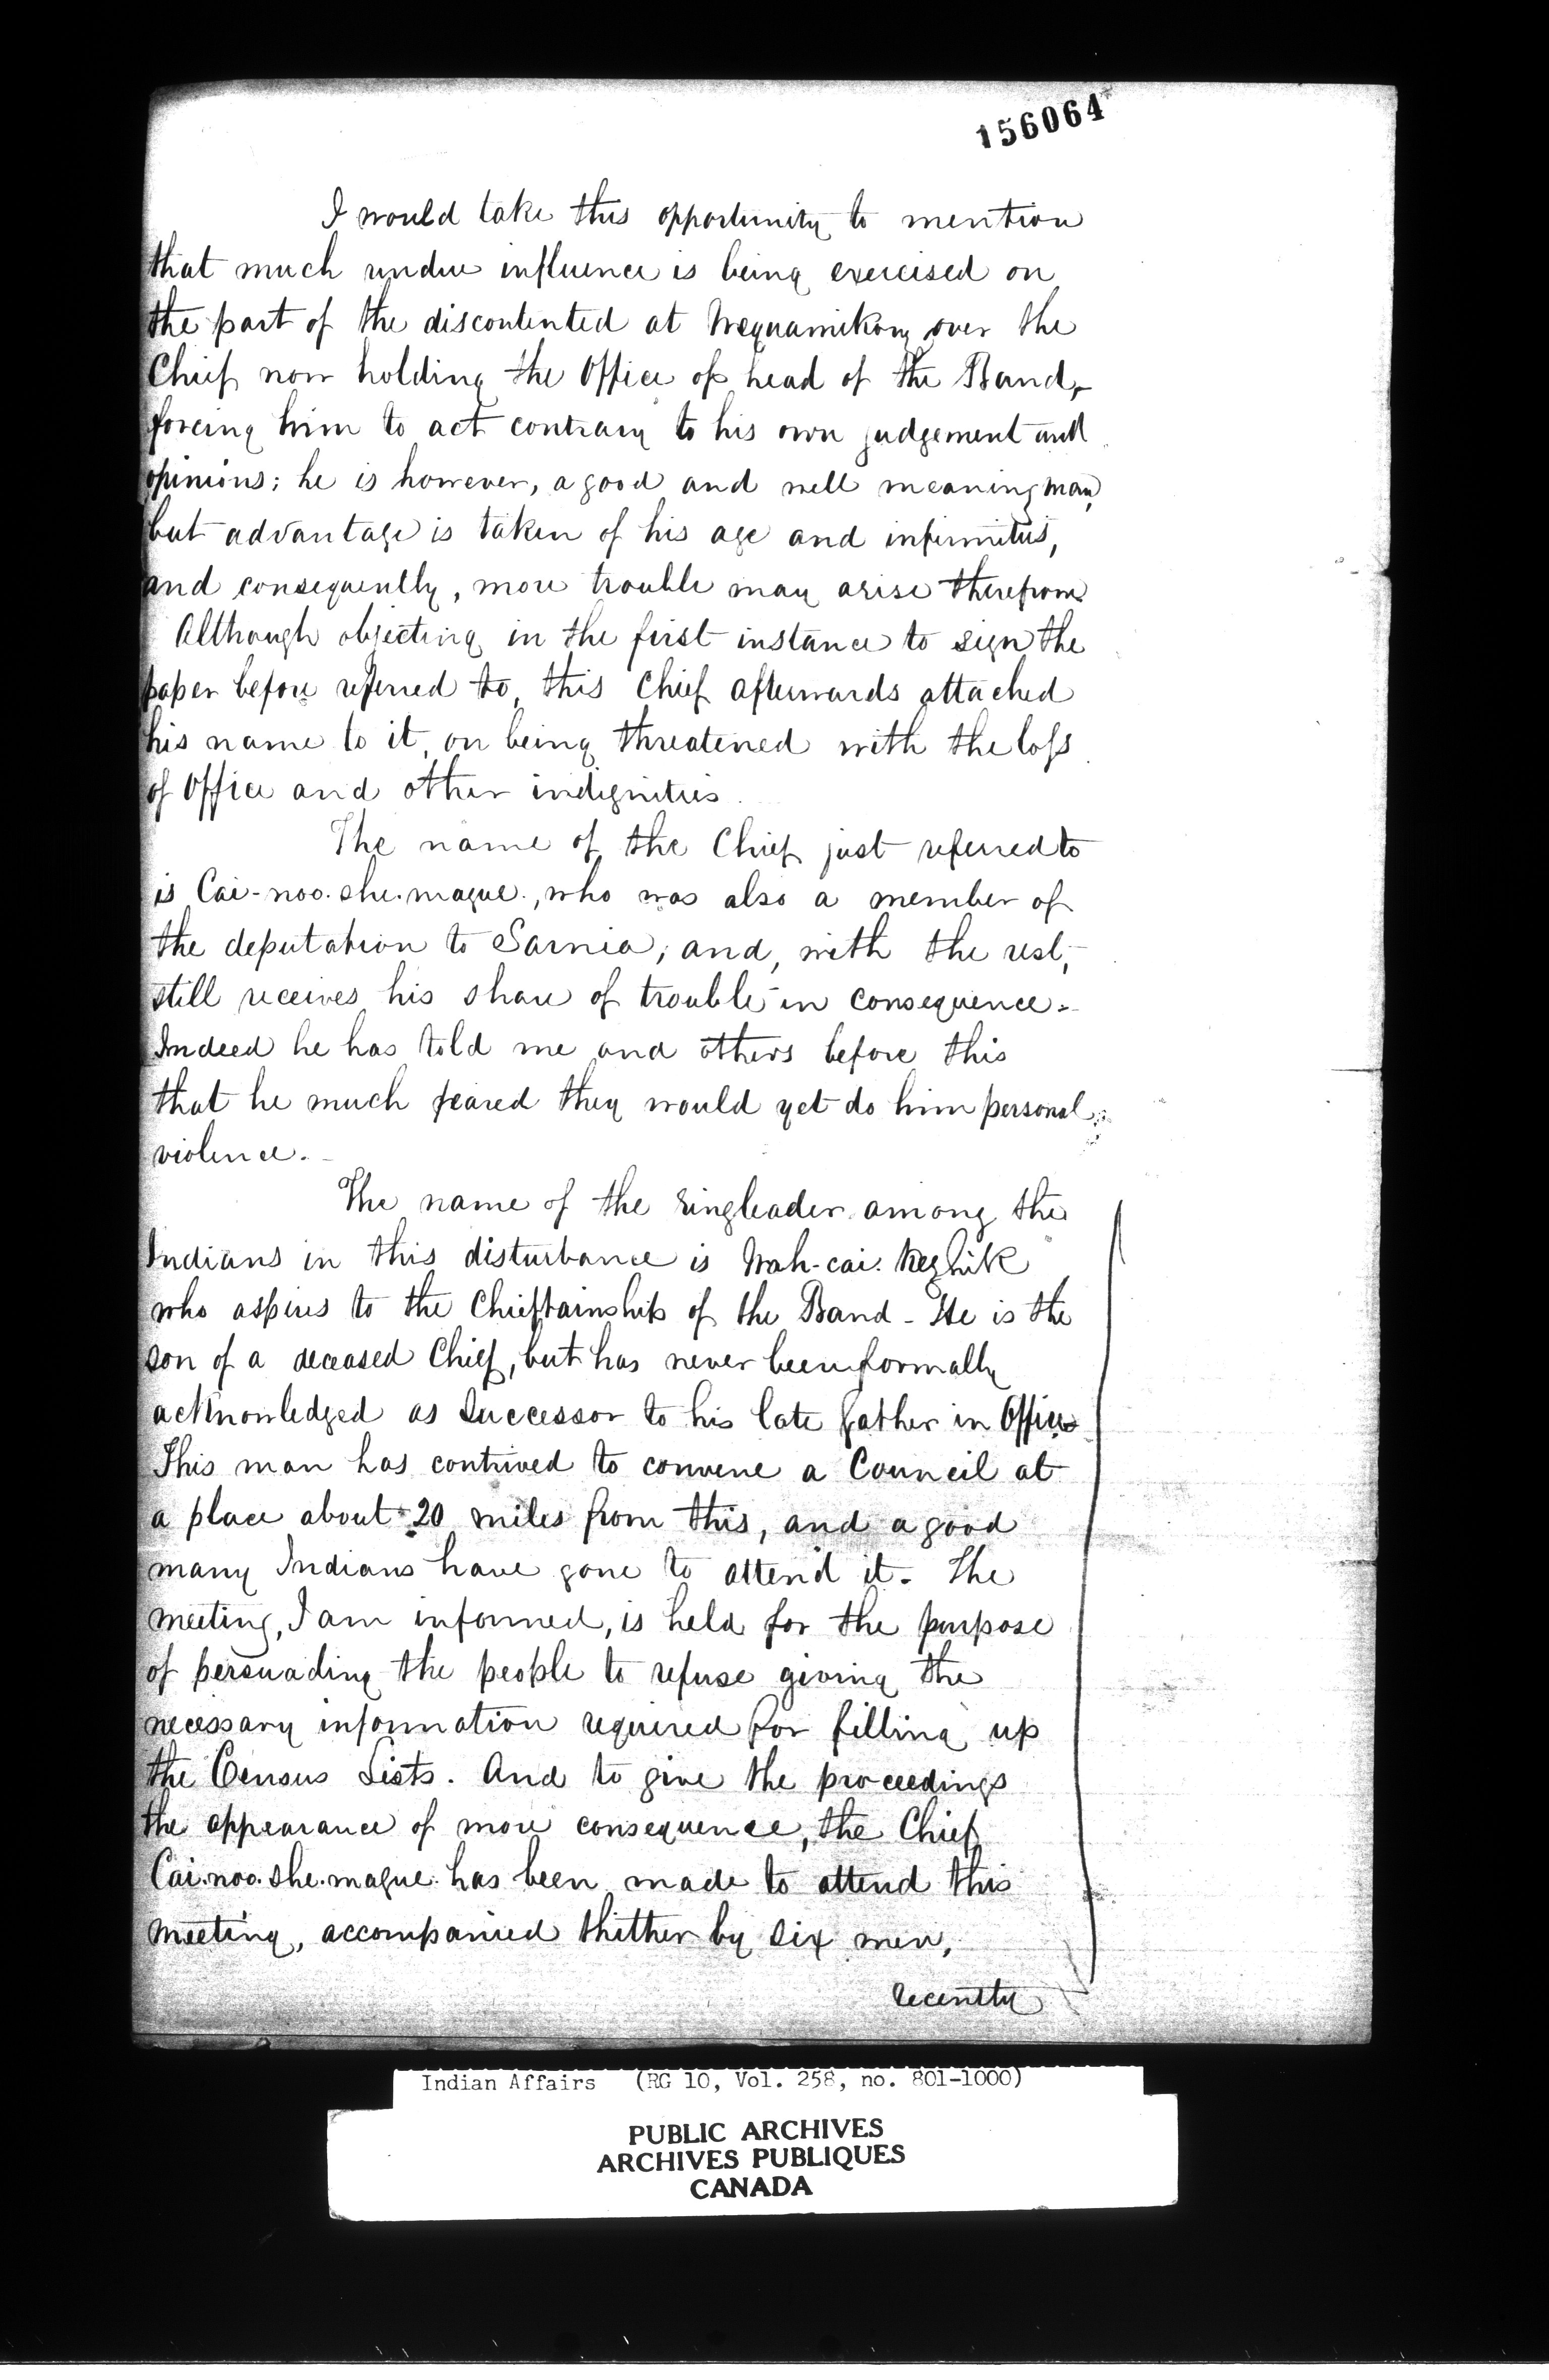 156064
I would take this opportunity to mention
that much undue influence is being exercised on
the part of the discontented at Wequamikong over the
Chief now holding the Office of head of the Band,
forcing him to act contrary to his own judgement and
opinions; he is however, a good and well meaning man,
but advantage is taken of his age and infirmities,
and consequently, more trouble may arise therefrom
Although objecting in the first instance to sign the
paper before referred to, this Chief afterwards attached
his name to it, on being threatened with the loss
of Office and other indignities.
The name of the Chief just referred to
is Cai-noo.she.mague., who was also a member of
the deputation to Sarnia; and, with the rest,
still receives his share of trouble in consequence.
Indeed he has told me and others before this
that he much feared they would yet do him personal
violence.
The name of the ringleader among the
Indians in this disturbance is Wah-cai.keghik
who aspires to the Chieftainship of the Band - He is the
son of a deceased Chief, but has never been formally
acknowledged as Successor to his late father in Office
This man has contrived to convene a Council at
a place about 20 miles from this, and a good
many Indians have gone to attend it. The
meeting, I am informed, is held for the purpose
of persuading the people to refuse giving the
necessary information required for filling up
the Census Lists. And to give the proceedings
the appearance of more consequence, the Chief
Cai.noo.she.mague. has been made to attend this
meeting, accompanied thither by six men,
recently
Indian Affairs (RG 10, Vol. 258, no. 801-1000)
PUBLIC ARCHIVES
ARCHIVES PUBLIQUES
CANADA